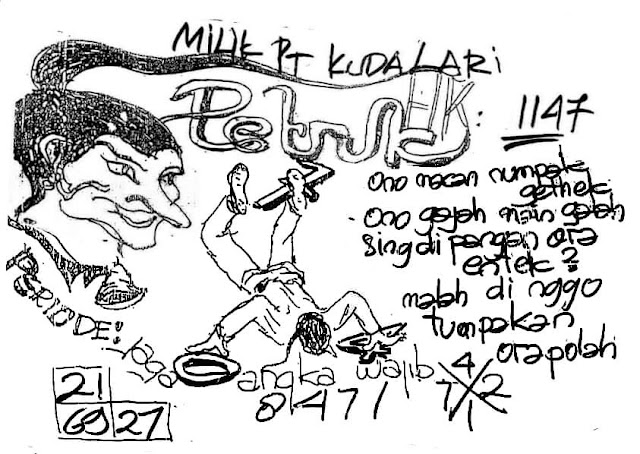 MILIK PT KUDA LARI
Petruk HK: 1147
ono macan numpak
gethek
ono gajah main galah
sing di pangan ora
entek?
malah di nggo
tumpakan
ora polah
jaga 0 angka wajib
21
69 27
8 4 7 1
4
7 2
1